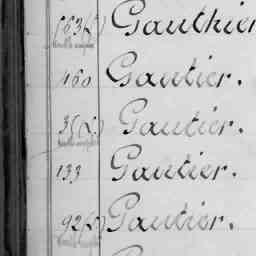 163(L) Gauthier
460 Gautier.
35(L) Gautier.
133 Gautier.
92(L) Gautier.